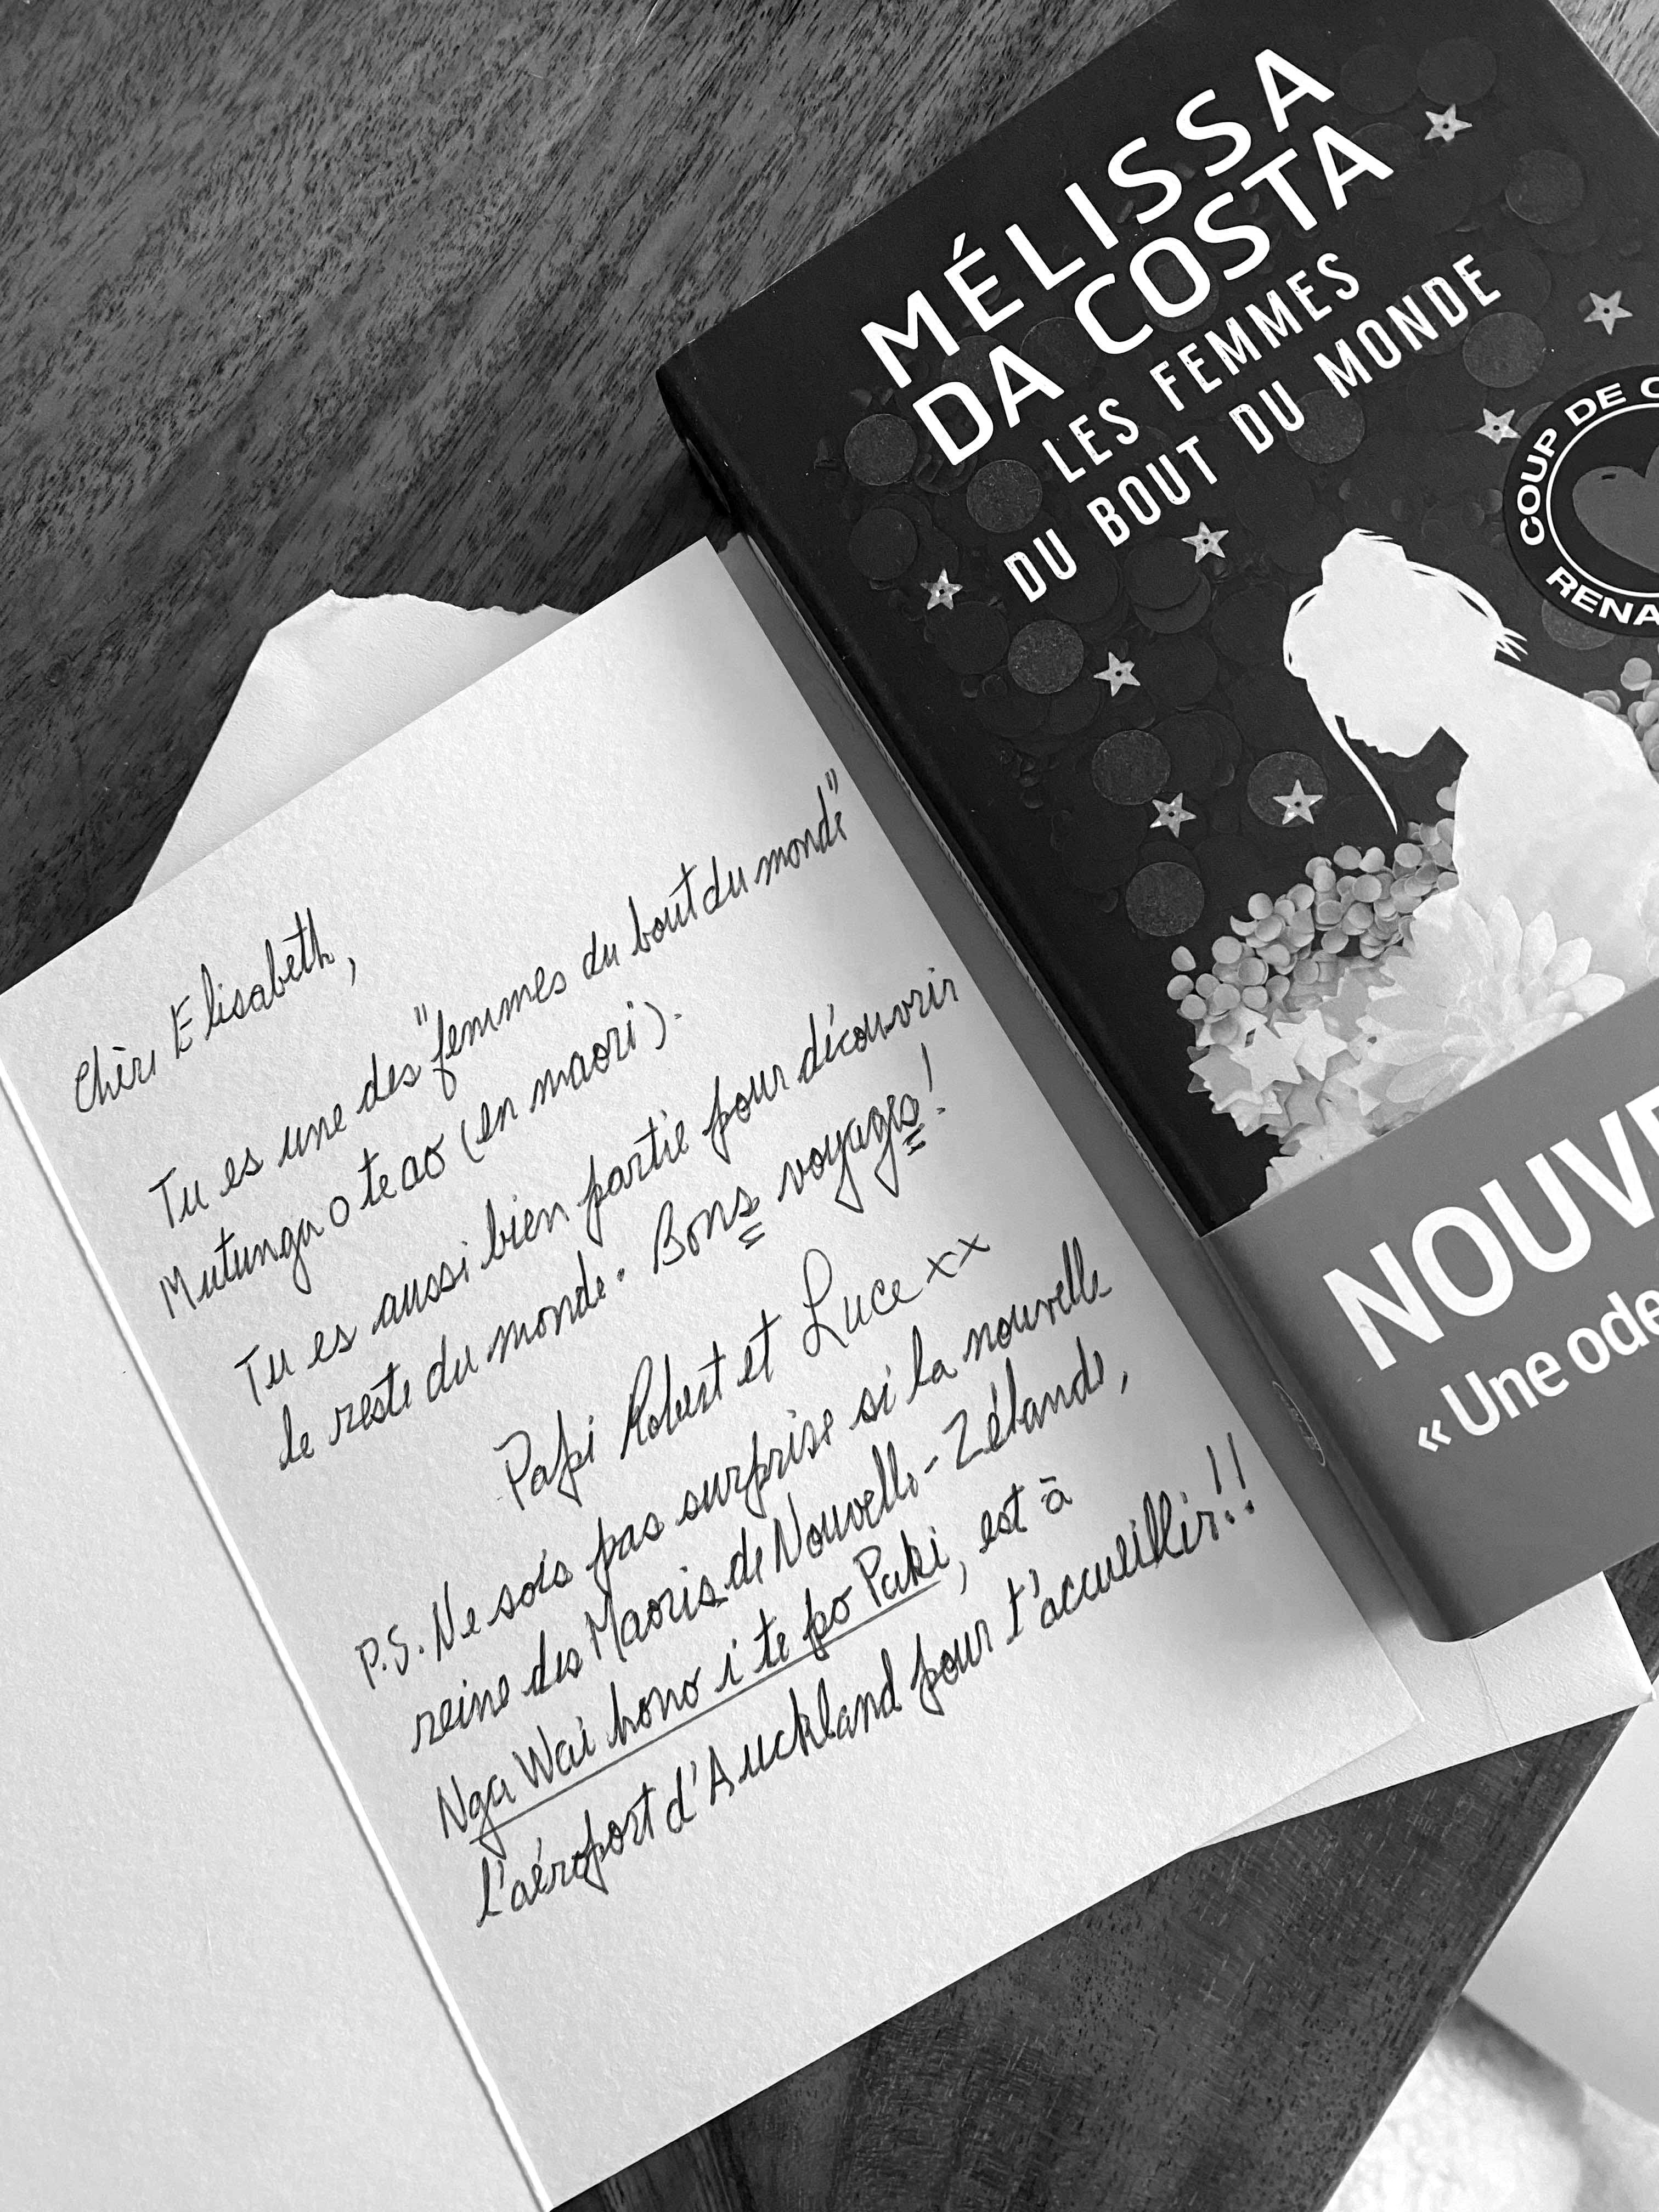 MÉLISSA
DA COSTA
LES FEMMES
DU BOUT DU MONDE
COUP DE
NOUV
« Une ode
Chère Elisabeth,
Tu es une des "femmes du bout du monde"
Mutunga o te ao (en maori).
Tu es aussi bien partie pour découvrir
le reste du monde. Bons voyages!
Papi Robert et Luce xx
P.S. Ne sois pas surprise si la nouvelle
reine des Maoris de Nouvelle-Zélande,
Nga Wai hono i te po Paki, est à
l'aéroport d'Auckland pour t'accueillir!!